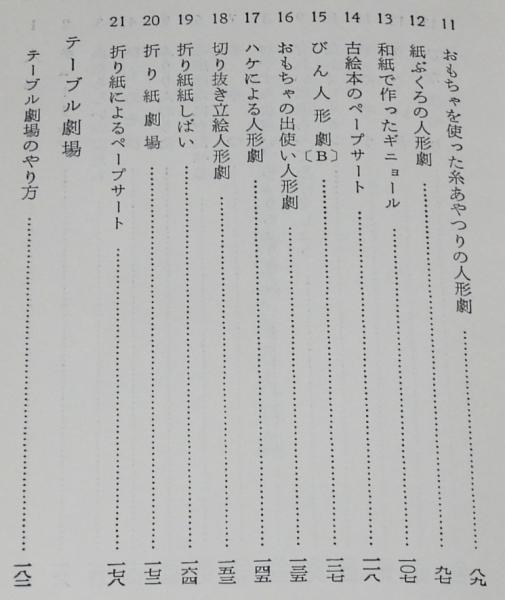 11 おもちゃを使った糸あやつりの人形劇 八九
12 紙ぶくろの人形劇 九七
13 和紙で作ったギニョール 一〇七
14 古絵本のペープサート 一一八
15 びん人形劇〔B〕 一二七
16 おもちゃの出使い人形劇 一三五
17 ハケによる人形劇 一四五
18 切り抜き立絵人形劇 一五三
19 折り紙紙しばい 一六四
20 折り紙劇場 一七二
21 折り紙によるペープサート 一七八
テーブル劇場
1 テーブル劇場のやり方 一八二